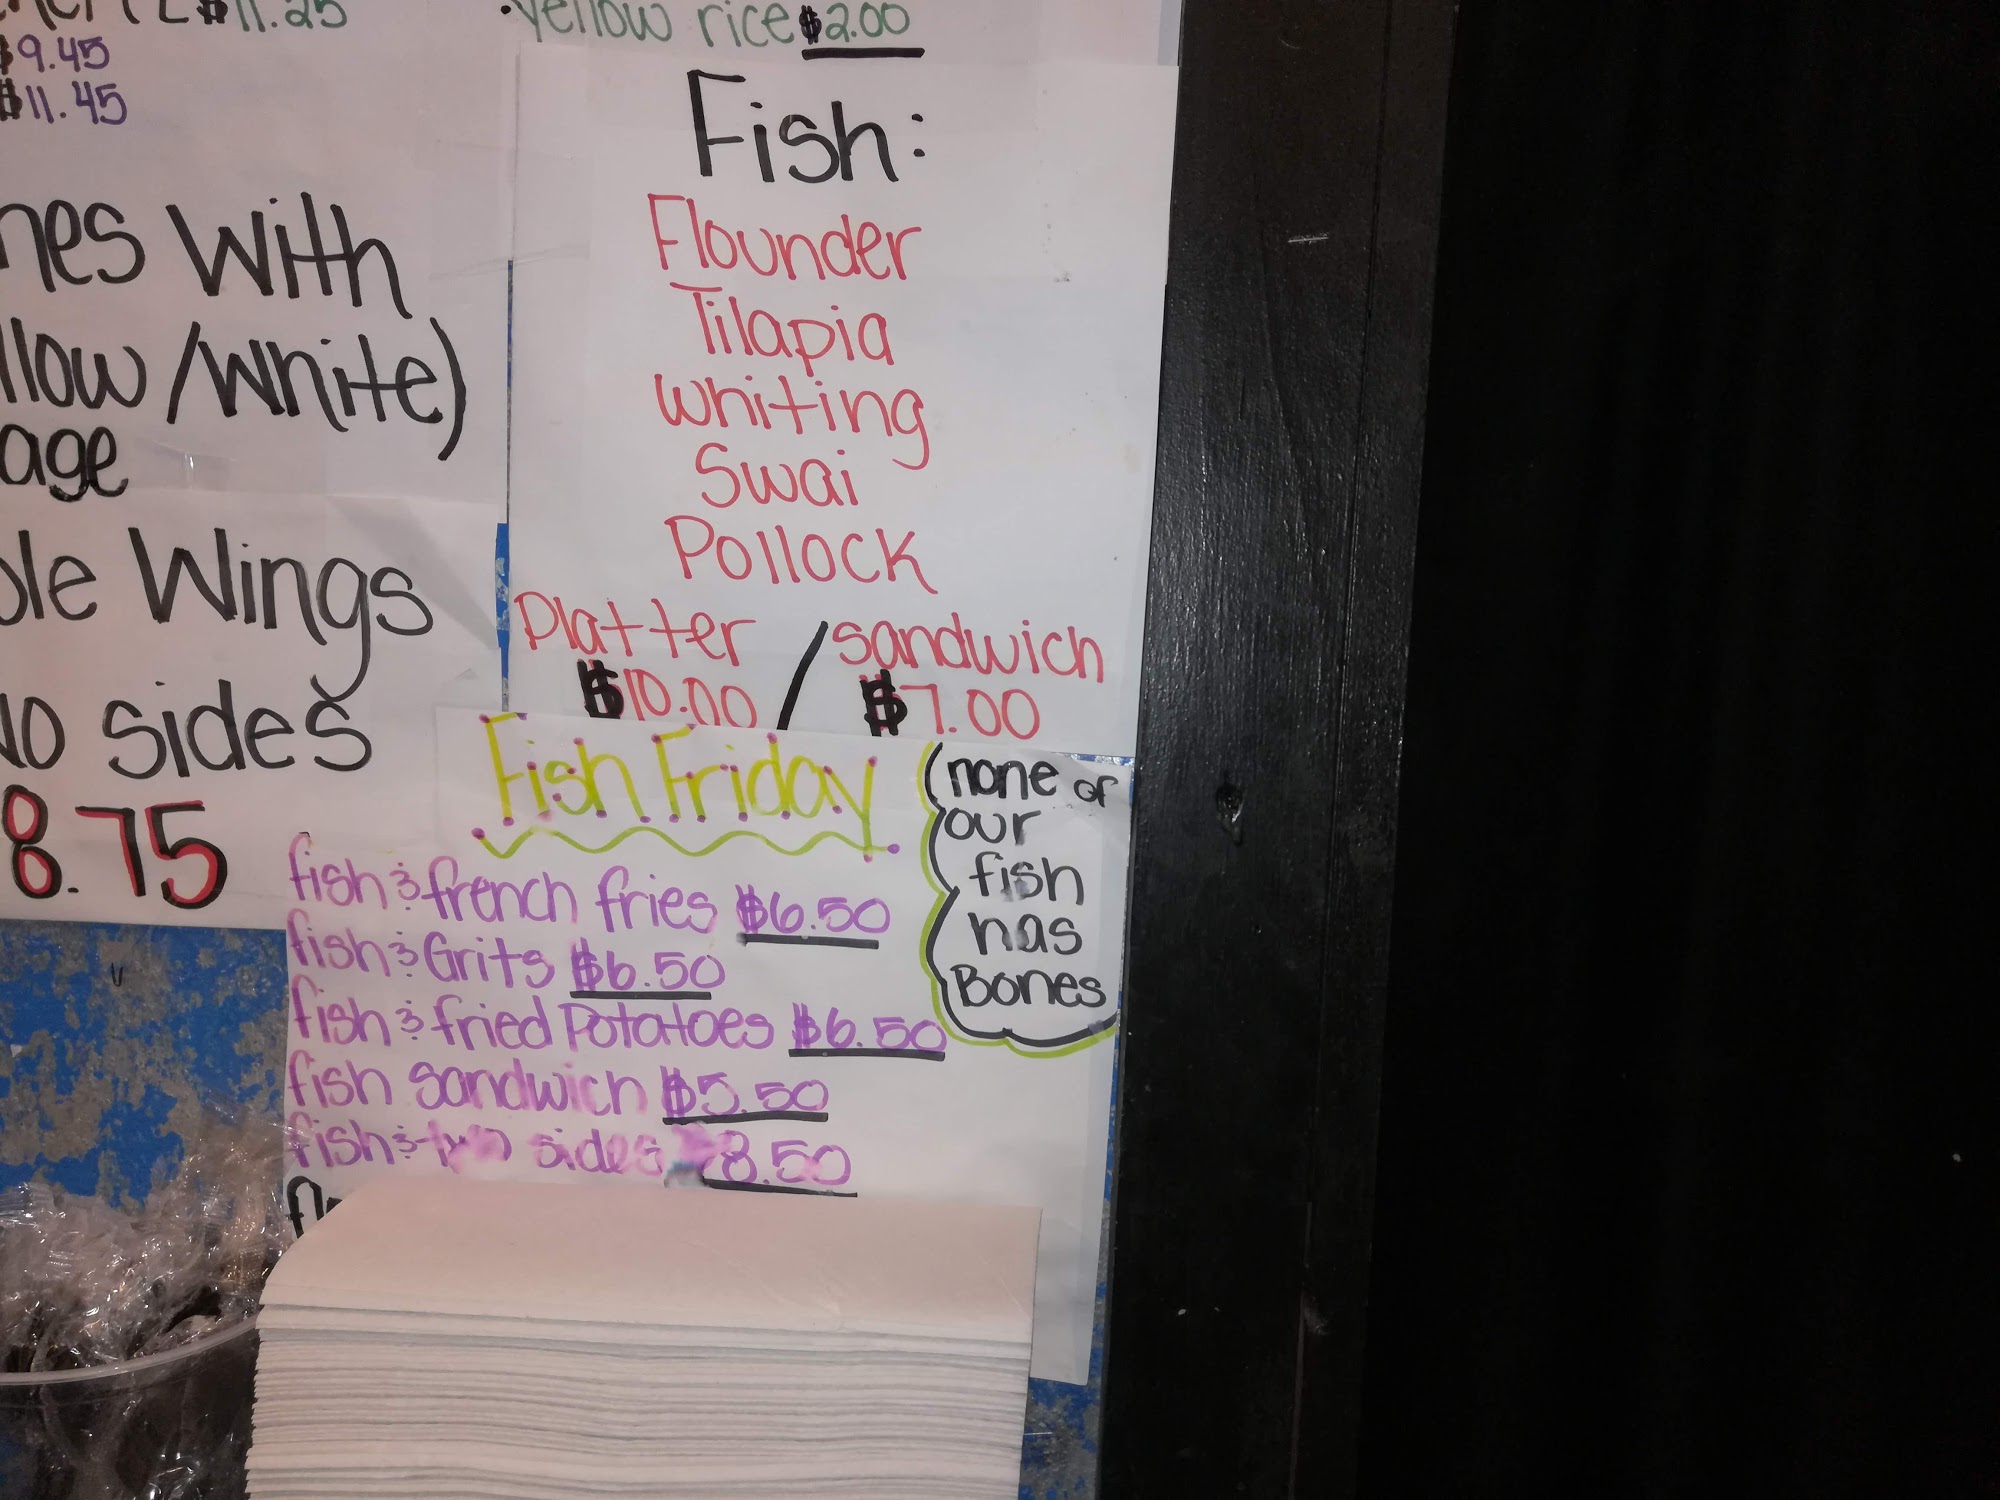 $11.25
$9.45
$11.45
yellow rice $2.00
with
/white)
Wings
sides
8.75
Fish:
Flounder
Tilapia
Whiting
Swai
Pollock
Platter / sandwich
$10.00 $7.00
Fish Friday
fish & french fries $6.50
fish & Grits $6.50
fish & fried Potatoes $6.50
fish sandwich $5.50
fish & two sides $8.50
(none of
our
fish
has
Bones